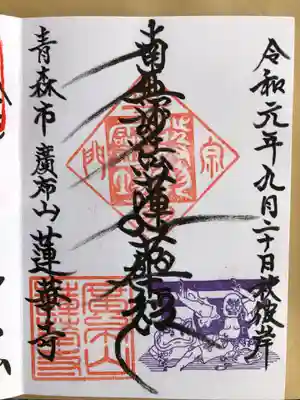 令和元年九月二十日秋彼岸
南無妙法蓮華経
青森市廣布山蓮華寺
宗
門